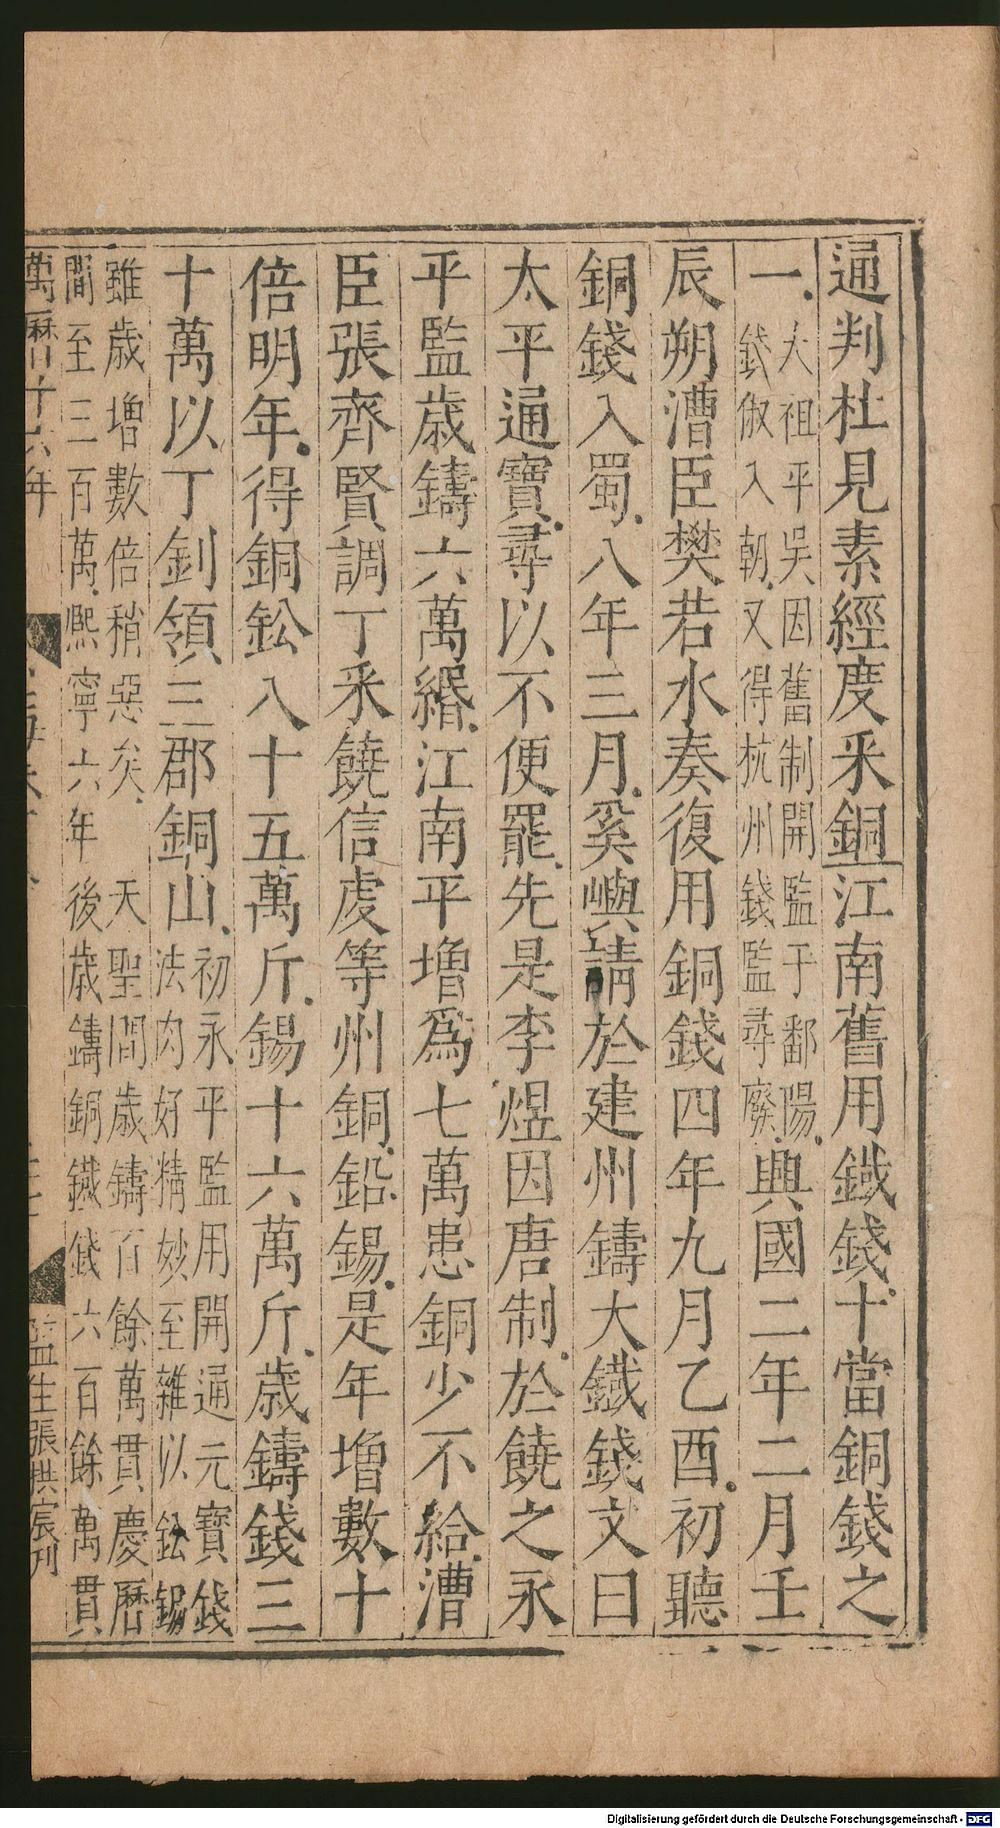 通判杜見素經度釆銅江南舊用鐵錢十當銅錢之
一太祖平吳因舊制開監于鄱陽
錢俶入朝又得杭州錢監尋廢興國二年二月壬
辰朔漕臣樊若水奏復用銅錢四年九月乙酉初聽
銅錢入蜀八年三月奚嶼請於建州鑄大鐵錢文曰
太平通寶尋以不便罷先是李煜因唐制於饒之永
平監歲鑄六萬緡江南平增爲七萬患銅少不給漕
臣張齊賢調丁釆饒信虔等州銅鉛錫是年增數十
倍明年得銅鈆八十五萬斤錫十六萬斤歲鑄錢三
十萬以丁釗領三郡銅山初永平監用開通元寶錢
法肉好精妙至雜以鈆錫
雖歲增數倍稍惡矣 天聖間歲鑄百餘萬貫慶曆
間至三百萬熈寧六年後歲鑄銅鐵錢六百餘萬貫
萬曆十六年
監生張拱宸刊
Digitalisierung gefördert durch die Deutsche Forschungsgemeinschaft - DFG